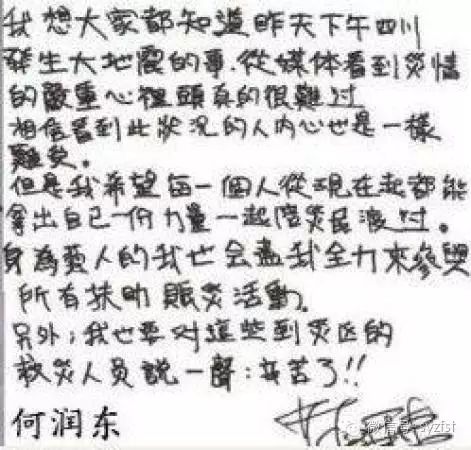 我想大家都知道昨天下午四川
發生大地震的事.從媒体看到災情
的嚴重心裡頭真的很難过
相信看到此狀況的人內心也是一樣
難受。
但是我希望每一個人從現在起都能
拿出自己一份力量一起陪災民渡过。
身為藝人的我也会盡我全力來參與
所有扶助賑災活動。
另外;我也要对這些到災区的
救災人员說一聲:辛苦了!!
何润东